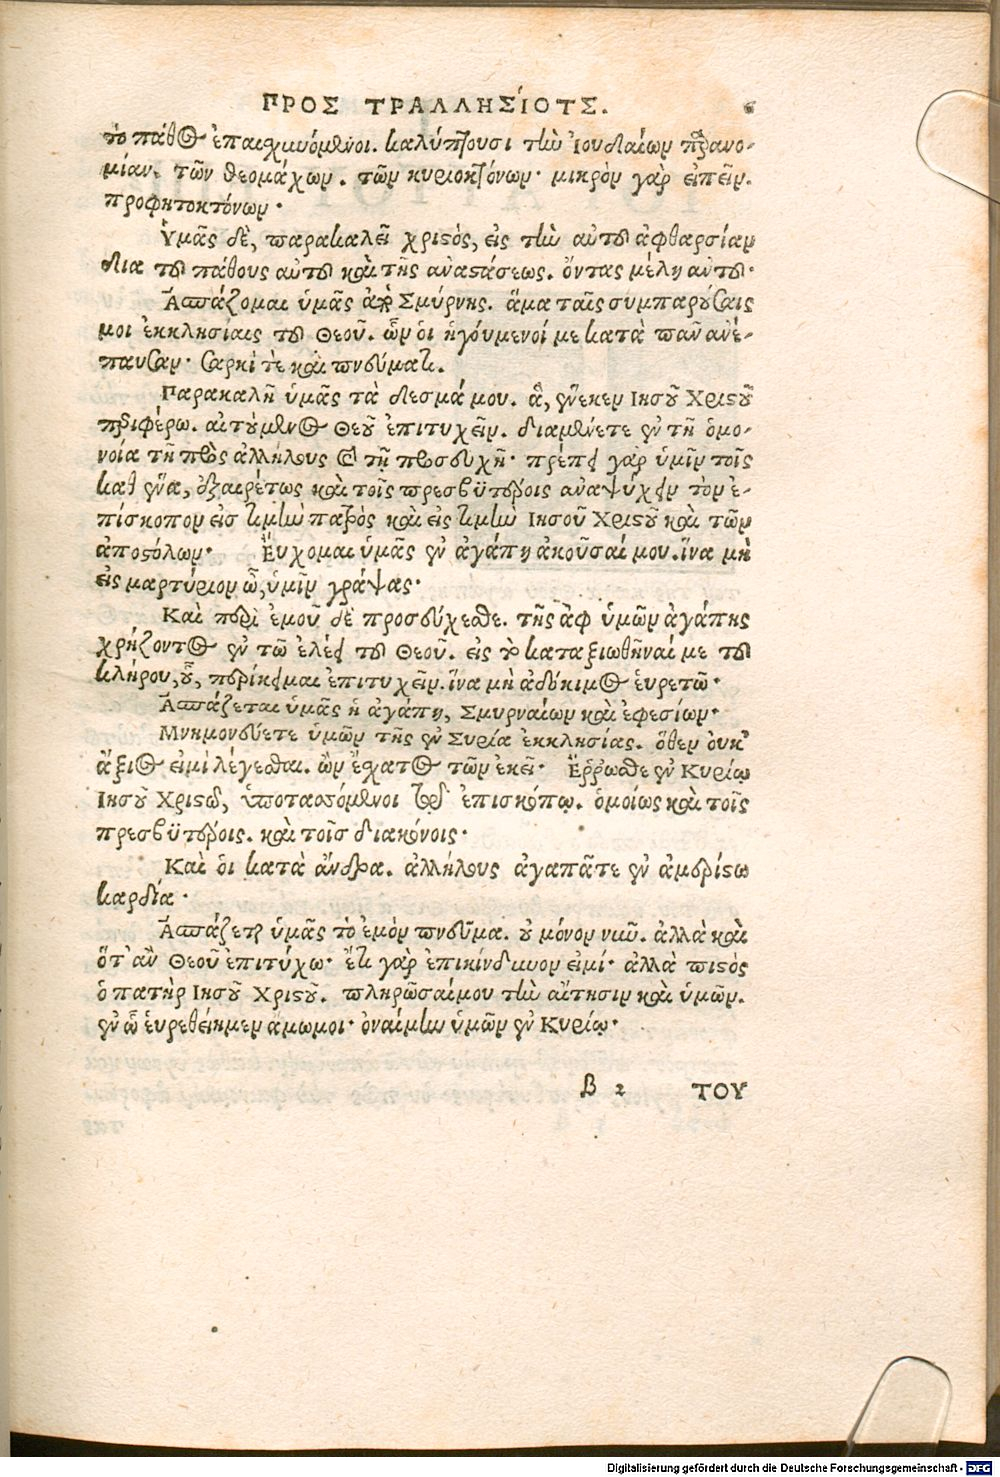 ΠΡΟΣ ΤΡΑΛΛΗΣΙΟΥΣ. 6
τὸ πάθος ἐπαισχυνόμενοι. καλύπτουσι τὴν Ἰουδαίων παρανο-
μίαν. τῶν θεομάχων. τῶν κυριοκτόνων· μικρὸν γὰρ εἰπεῖν.
προφητοκτόνων·
Ὑμᾶς δὲ, παρακαλεῖ χριστὸς, εἰς τὴν αὐτοῦ ἀφθαρσίαν
δια τοῦ πάθους αὐτοῦ καὶ τῆς ἀναστάσεως. ὄντας μέλη αὐτοῦ·
Ἀσπάζομαι ὑμᾶς ἀπὸ Σμύρνης. ἅμα ταῖς συμπαρούσαις
μοι ἐκκλησίαις τοῦ Θεοῦ. ὧν ὁι ἡγόυμενοί με κατὰ παν ἀνέ-
παυσαν· σαρκὶ τὲ καὶ πνεύματι.
Παρακαλῆ ὑμᾶς τὰ δεσμά μου. ἃ, ἕνεκεν Ιησοῦ Χριστοῦ
περιφέρω. αἰτούμενος Θεοῦ ἐπιτυχεῖν. διαμένετε ἐν τῆ ὁμο-
νοία τῆ πρὸς ἀλλήλους καὶ τῆ προσευχῆ· πρέπει γὰρ ὑμῖν τοῖς
καθ ἕνα, ἐξαιρέτως καὶ τοῖς πρεσβϋτέροις ἀναψύχειν τὸν ἐ-
πίσκοπον εἰσ τιμὴν πατρὸς καὶ εἰς τιμὴν Ιησοῦ Χριστοῦ καὶ τῶν
ἀποστόλων· Ἔυχομαι ὑμᾶς ἐν ἀγάπη ἀκοῦσαί μου. ἵνα μὴ
εἰς μαρτύριον ὦ, ὑμῖν γράψας·
Καὶ περὶ ἐμοῦ δὲ προσεύχεσθε. τῆς ἀφ ὑμῶν ἀγάπης
χρήζοντος ἐν τῶ ἐλέει τοῦ Θεοῦ. εἰς τὸ καταξιωθῆναί με τοῦ
κλήρου, οὗ, περίκειμαι ἐπιτυχεῖν. ἵνα μὴ ἀδόκιμος ἑυρετῶ·
Ἀσπάζεται ὑμᾶς ἡ ἀγάπη, Σμυρναίων καὶ ἐφεσίων·
Μνημονεύετε ὑμῶν τῆς ἐν Συρία ἐκκλησίας. ὅθεν ὀυκ
ἄξιος εἰμὶ λέγεσθαι. ὢν ἔσχατος τῶν ἐκεῖ· Ἔῤῥωσθε ἐν Κυρίῳ
Ιησοῦ Χριστῶ, ὑποτασσόμενοι τῷ ἐπισκόπῳ. ὁμοίως καὶ τοῖς
πρεσβϋτέροις. καὶ τοῖσ διακόνοις·
Καὶ ὁι κατὰ ἄνδρα. ἀλλήλους ἀγαπᾶτε ἐν ἀμερίστω
καρδία·
Ἀσπάζεται ὑμᾶς τὸ ἐμὸν πνεῦμα. οὐ μόνον νυῦ. ἀλλὰ καὶ
ὅτ᾽ ἂν Θεοῦ ἐπιτύχω· ἔτι γὰρ ἐπικίνδυνον εἰμί· ἀλλὰ πιστὸς
ὁ πατὴρ Ιησοῦ Χριστοῦ. πληρῶσαίμου τὴν αἴτησιν καὶ ὑμῶν.
ἐν ὧ ἑυρεθείημεν ἄμωμοι· ὀναίμην ὑμῶν ἐν Κυρίῳ·
β 2 ΤΟΥ
Digitalisierung gefördert durch die Deutsche Forschungsgemeinschaft - DFG